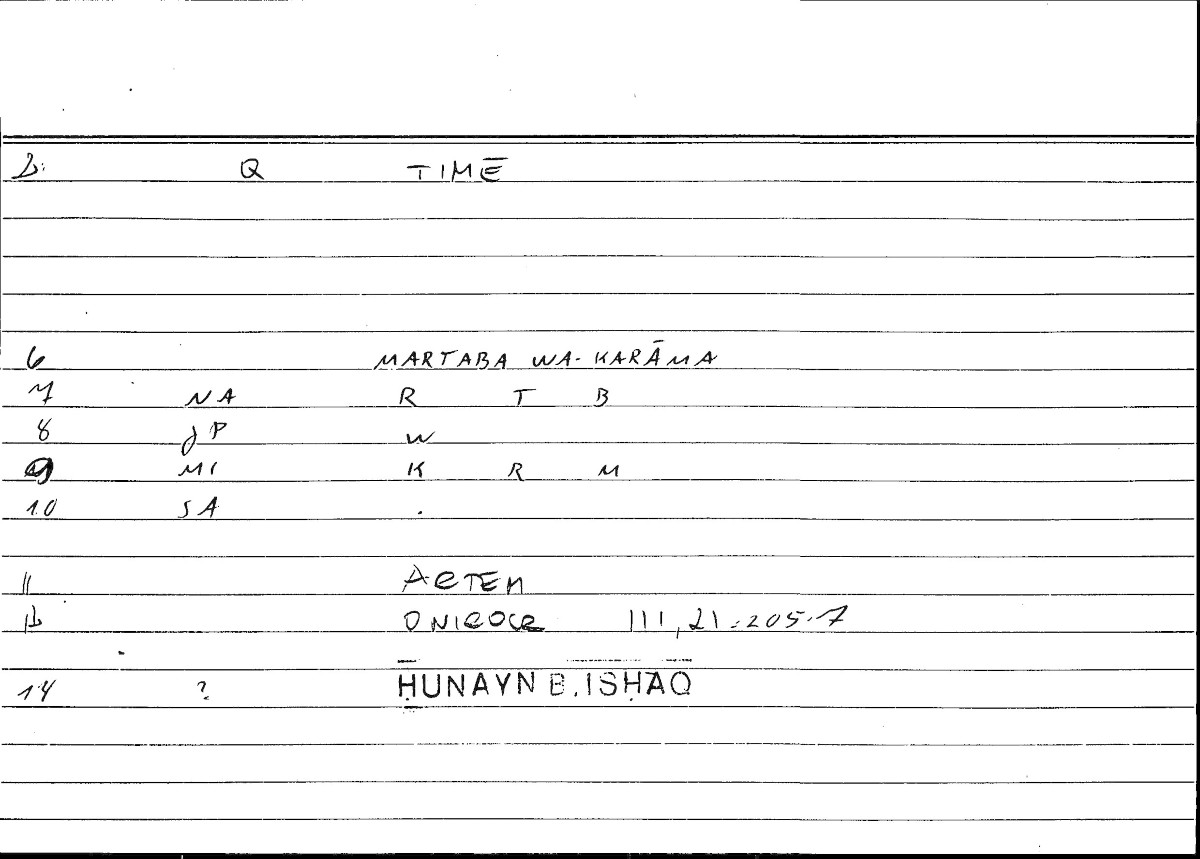 2. Q TIMĒ
6 MARTABA WA-KARĀMA
7 NA R T B
8 JP W
9 MI K R M
10 SA .
11 ARTEM
12 ONIROCR III, 21 = 205.7
14 ? ḤUNAYN B. ISḤĀQ